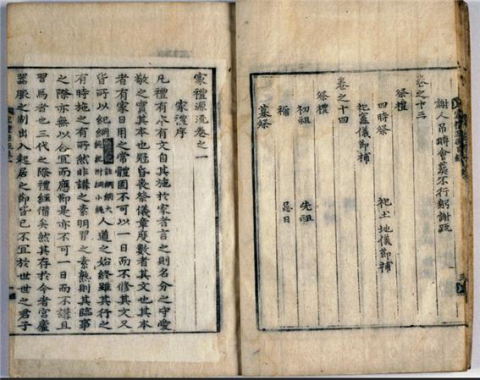 謝人弔賻會葬不行躬謝疏
卷之十三
祭禮
四時祭 祀土地儀節補
祀竈儀節補
卷之十四
祭禮
初祖 先祖
禰 忌日
墓祭
家禮源流卷之一
家禮序
凡禮有本有文自其施於家者言之則名分之守愛
敬之實其本也冠昏喪祭儀章度數者其文也其本
者有家日用之常體固不可以一日而不修其文又
皆所以紀綱人道之始終雖其行之
有時施之有所然非講之素明習之素熟則其臨事
之際亦無以合宜而應節是亦不可一日而不講且
習焉者也三代之際禮經備矣然其存於今者宮廬
器服之制出入起居之節皆已不宜於世世之君子